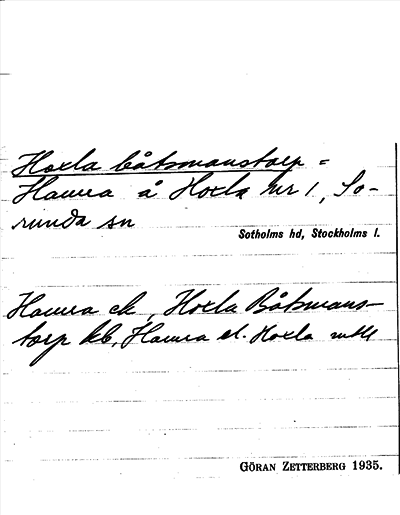 Hoxla båtsmanstorp =
Hamra å Hoxla nr 1, So-
runda sn
Sotholms hd, Stockholms l.
Hamra ck, Hoxla Båtsmans-
torp kb, Hamra el. Hoxla mtl
GÖRAN ZETTERBERG 1935.